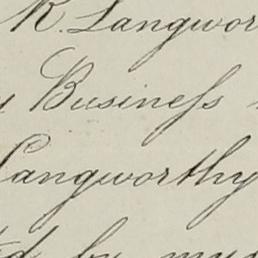 R. Langwor
Business
Langworthy
by